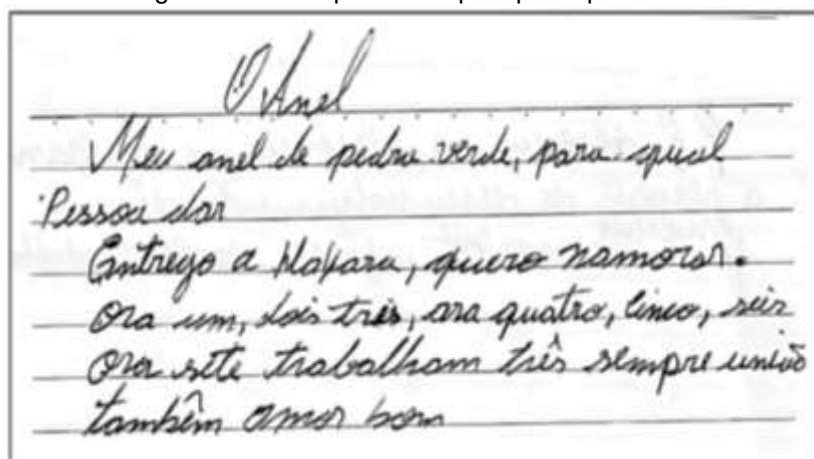 O Anel
Meu anel de pedra verde, para qual
Pessoa dar
Entrego a Nayara, quero namorar.
Ora um, dois três, ora quatro, cinco, seis
Ora sete trabalham três sempre união
também amor bom